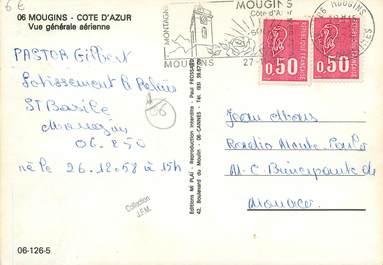 6€
06 MOUGINS - COTE D'AZUR
Vue générale aérienne
MONTAGNE
MOUGINS
MOUGINS
Côte d'A
27-1
06 MOUGINS
0,50
REPUBLIQUE FRANÇAISE
0,50
REPUBLIQUE FRANÇAISE
PASTOR Gilbert
Lotissement le Relais
St Basile
Mougins
06.250
né le 26.12.58 à 15h
06
Collection
J.F.M.
Editions tel PLAÏ - Reproduction interdite - Paul FROSSARD
42, Boulevard du Moulin - 06-CANNES - Tél. (93)
Jean
Radio Monte-Carlo
M.C. Principauté de
Monaco
06-126-5